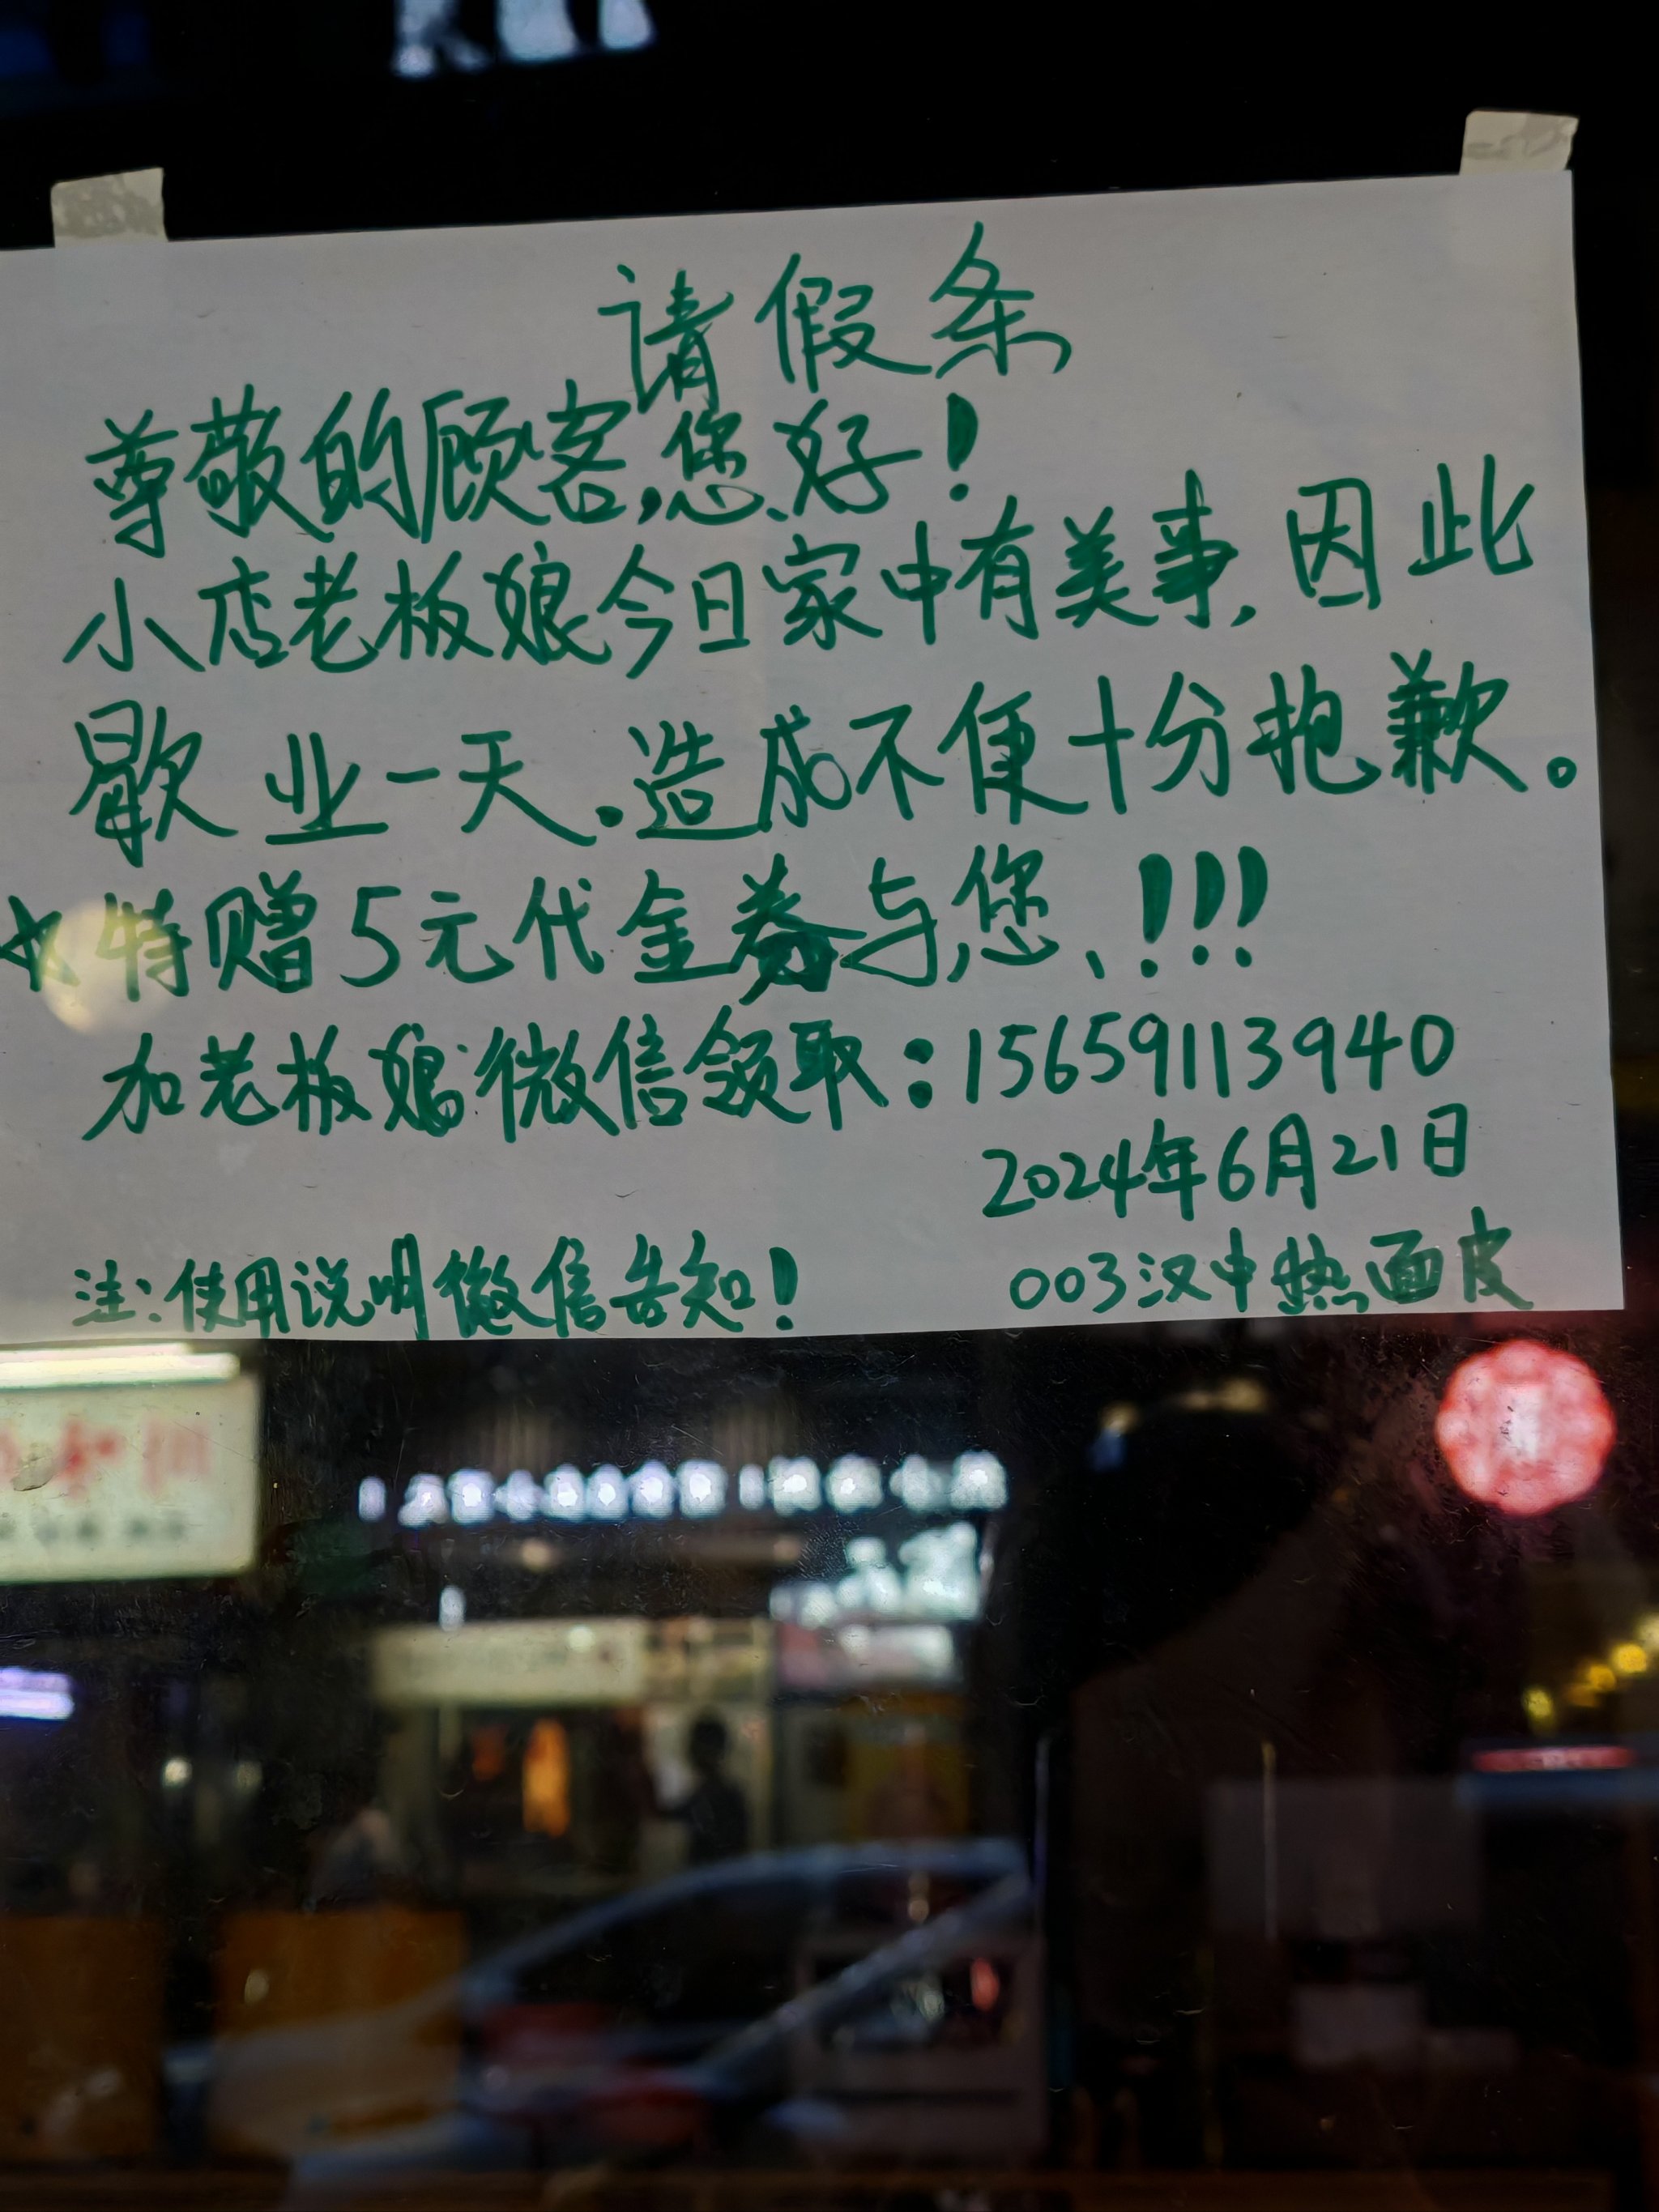 请假条
尊敬的顾客,您好!
小店老板娘今日家中有美事,因此
歇业一天.造成不便十分抱歉。
☆特赠5元代金券与您、!!!
加老板娘微信领取:15659113940
2024年6月21日
注:使用说明微信告知!
003汉中热面皮